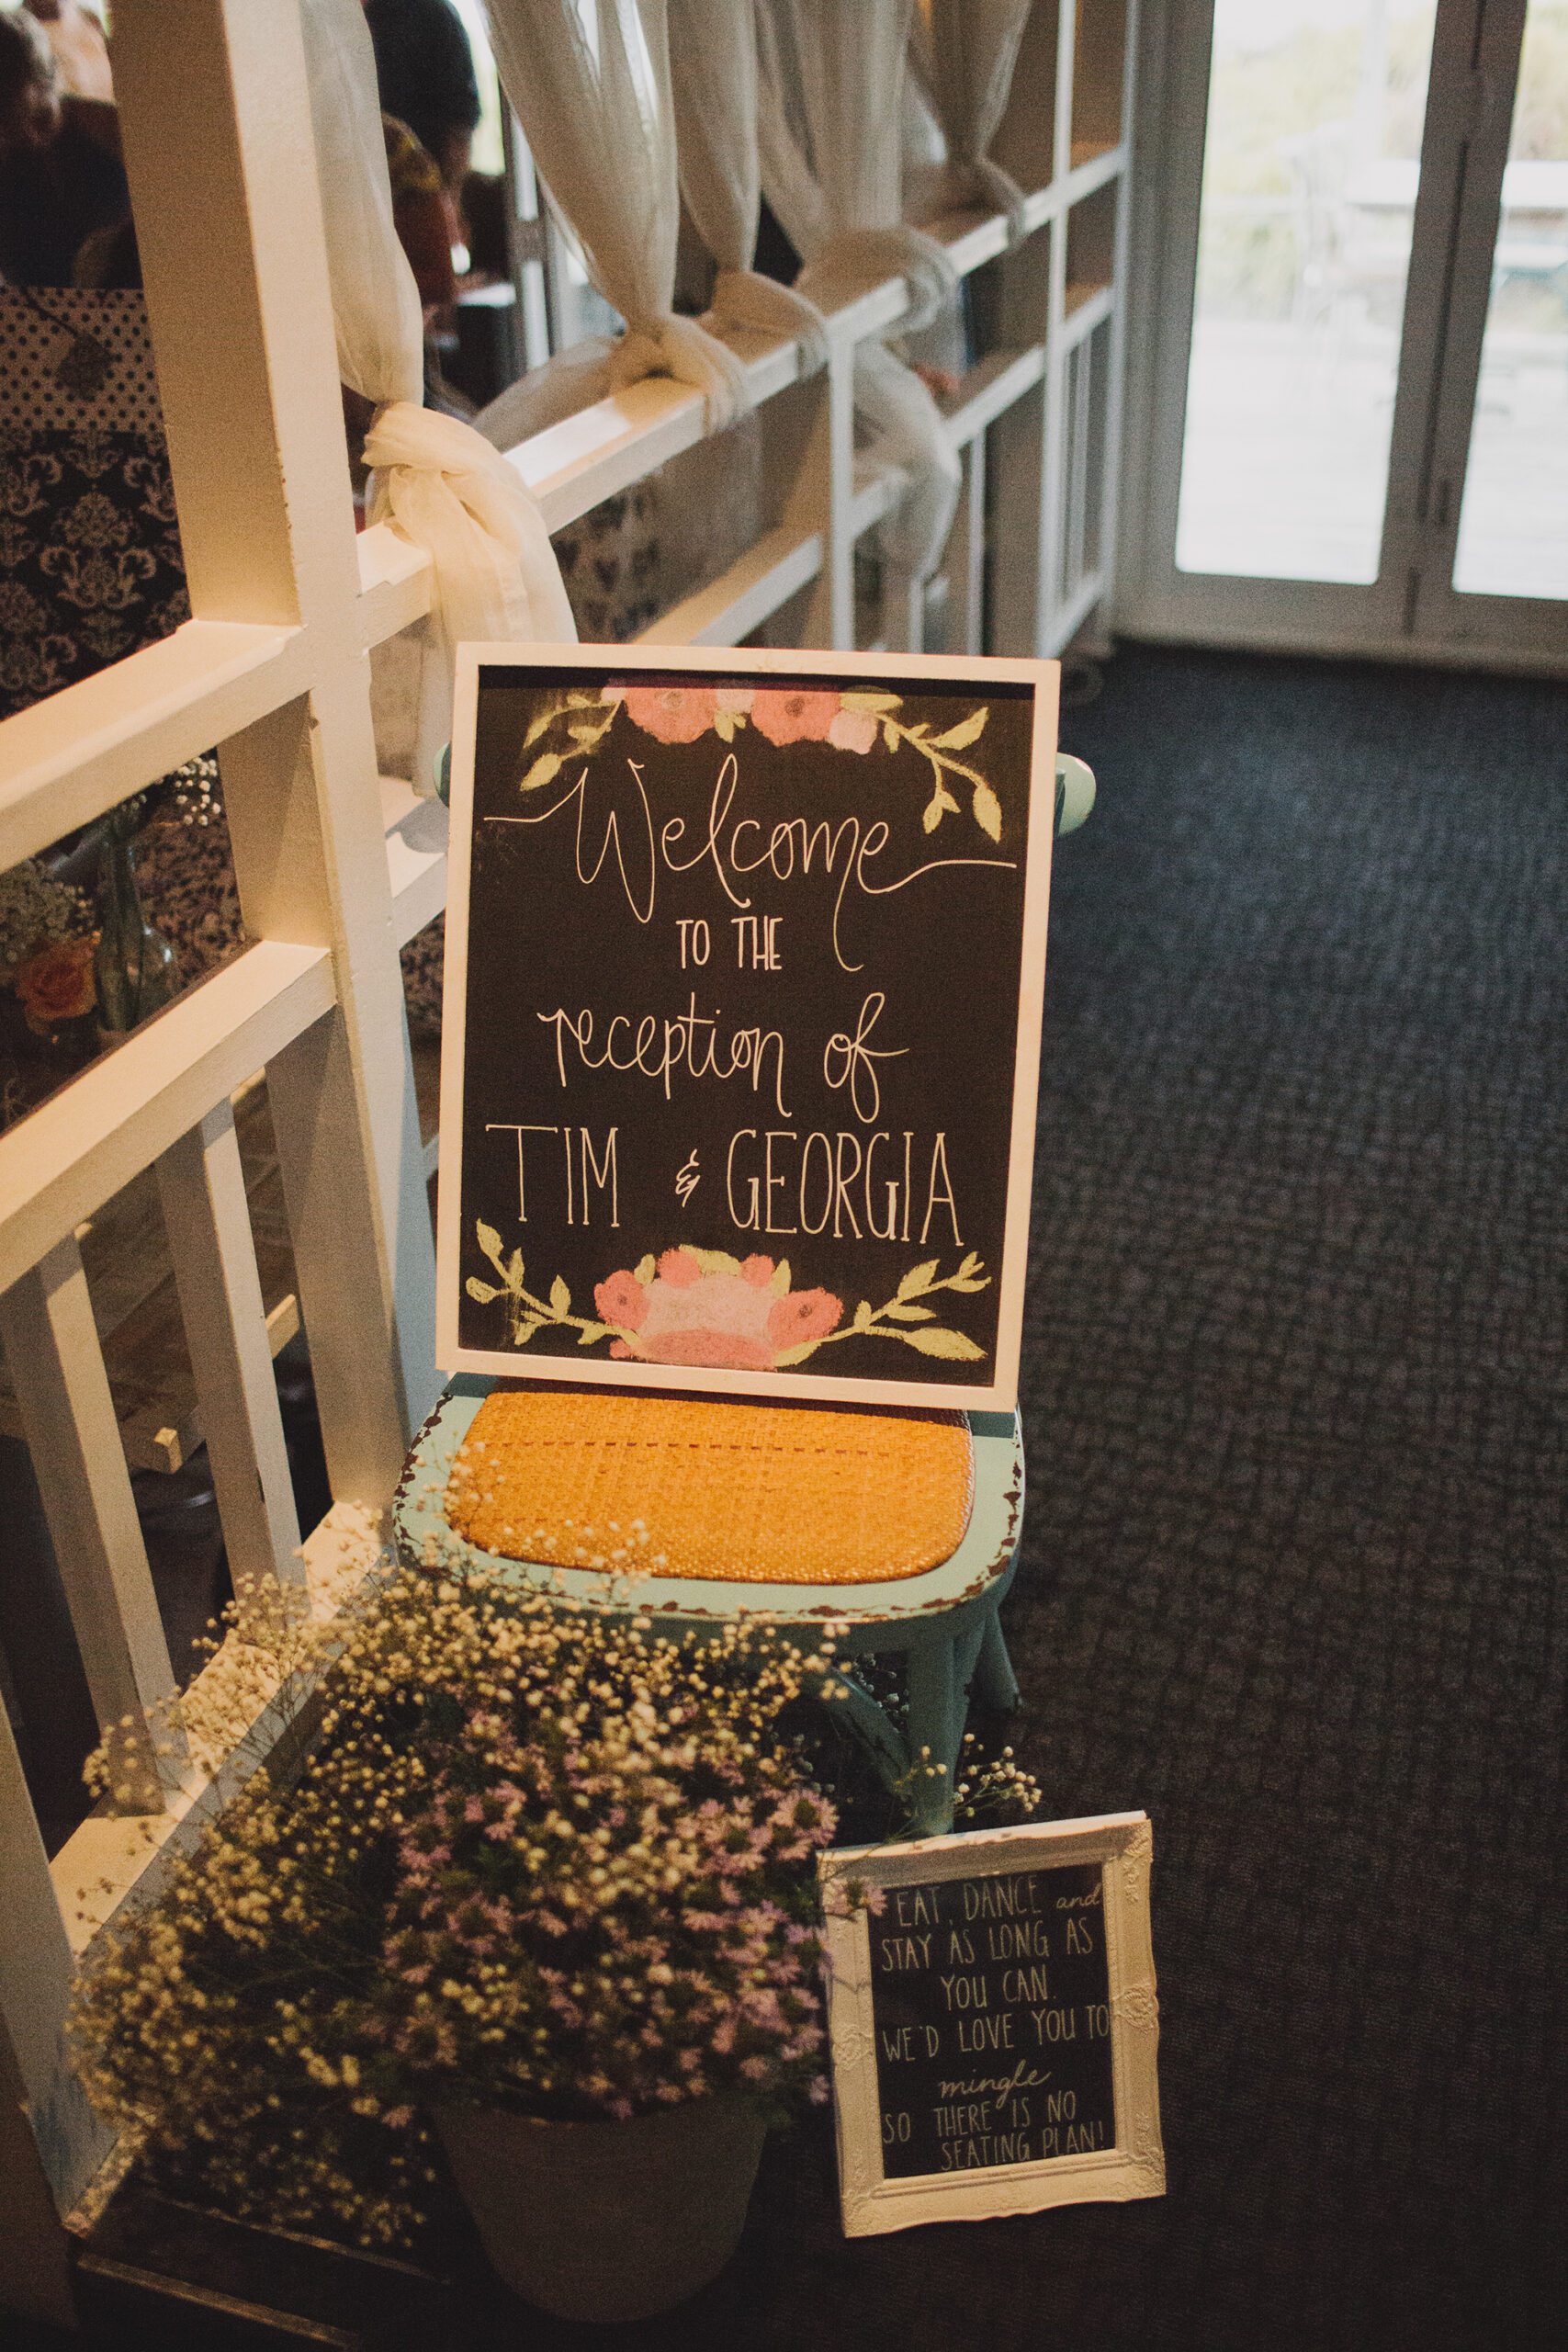 Welcome
TO THE
reception of
TIM & GEORGIA
EAT, DANCE and
STAY AS LONG AS
YOU CAN.
WE'D LOVE YOU TO
mingle
SO THERE IS NO
SEATING PLAN!